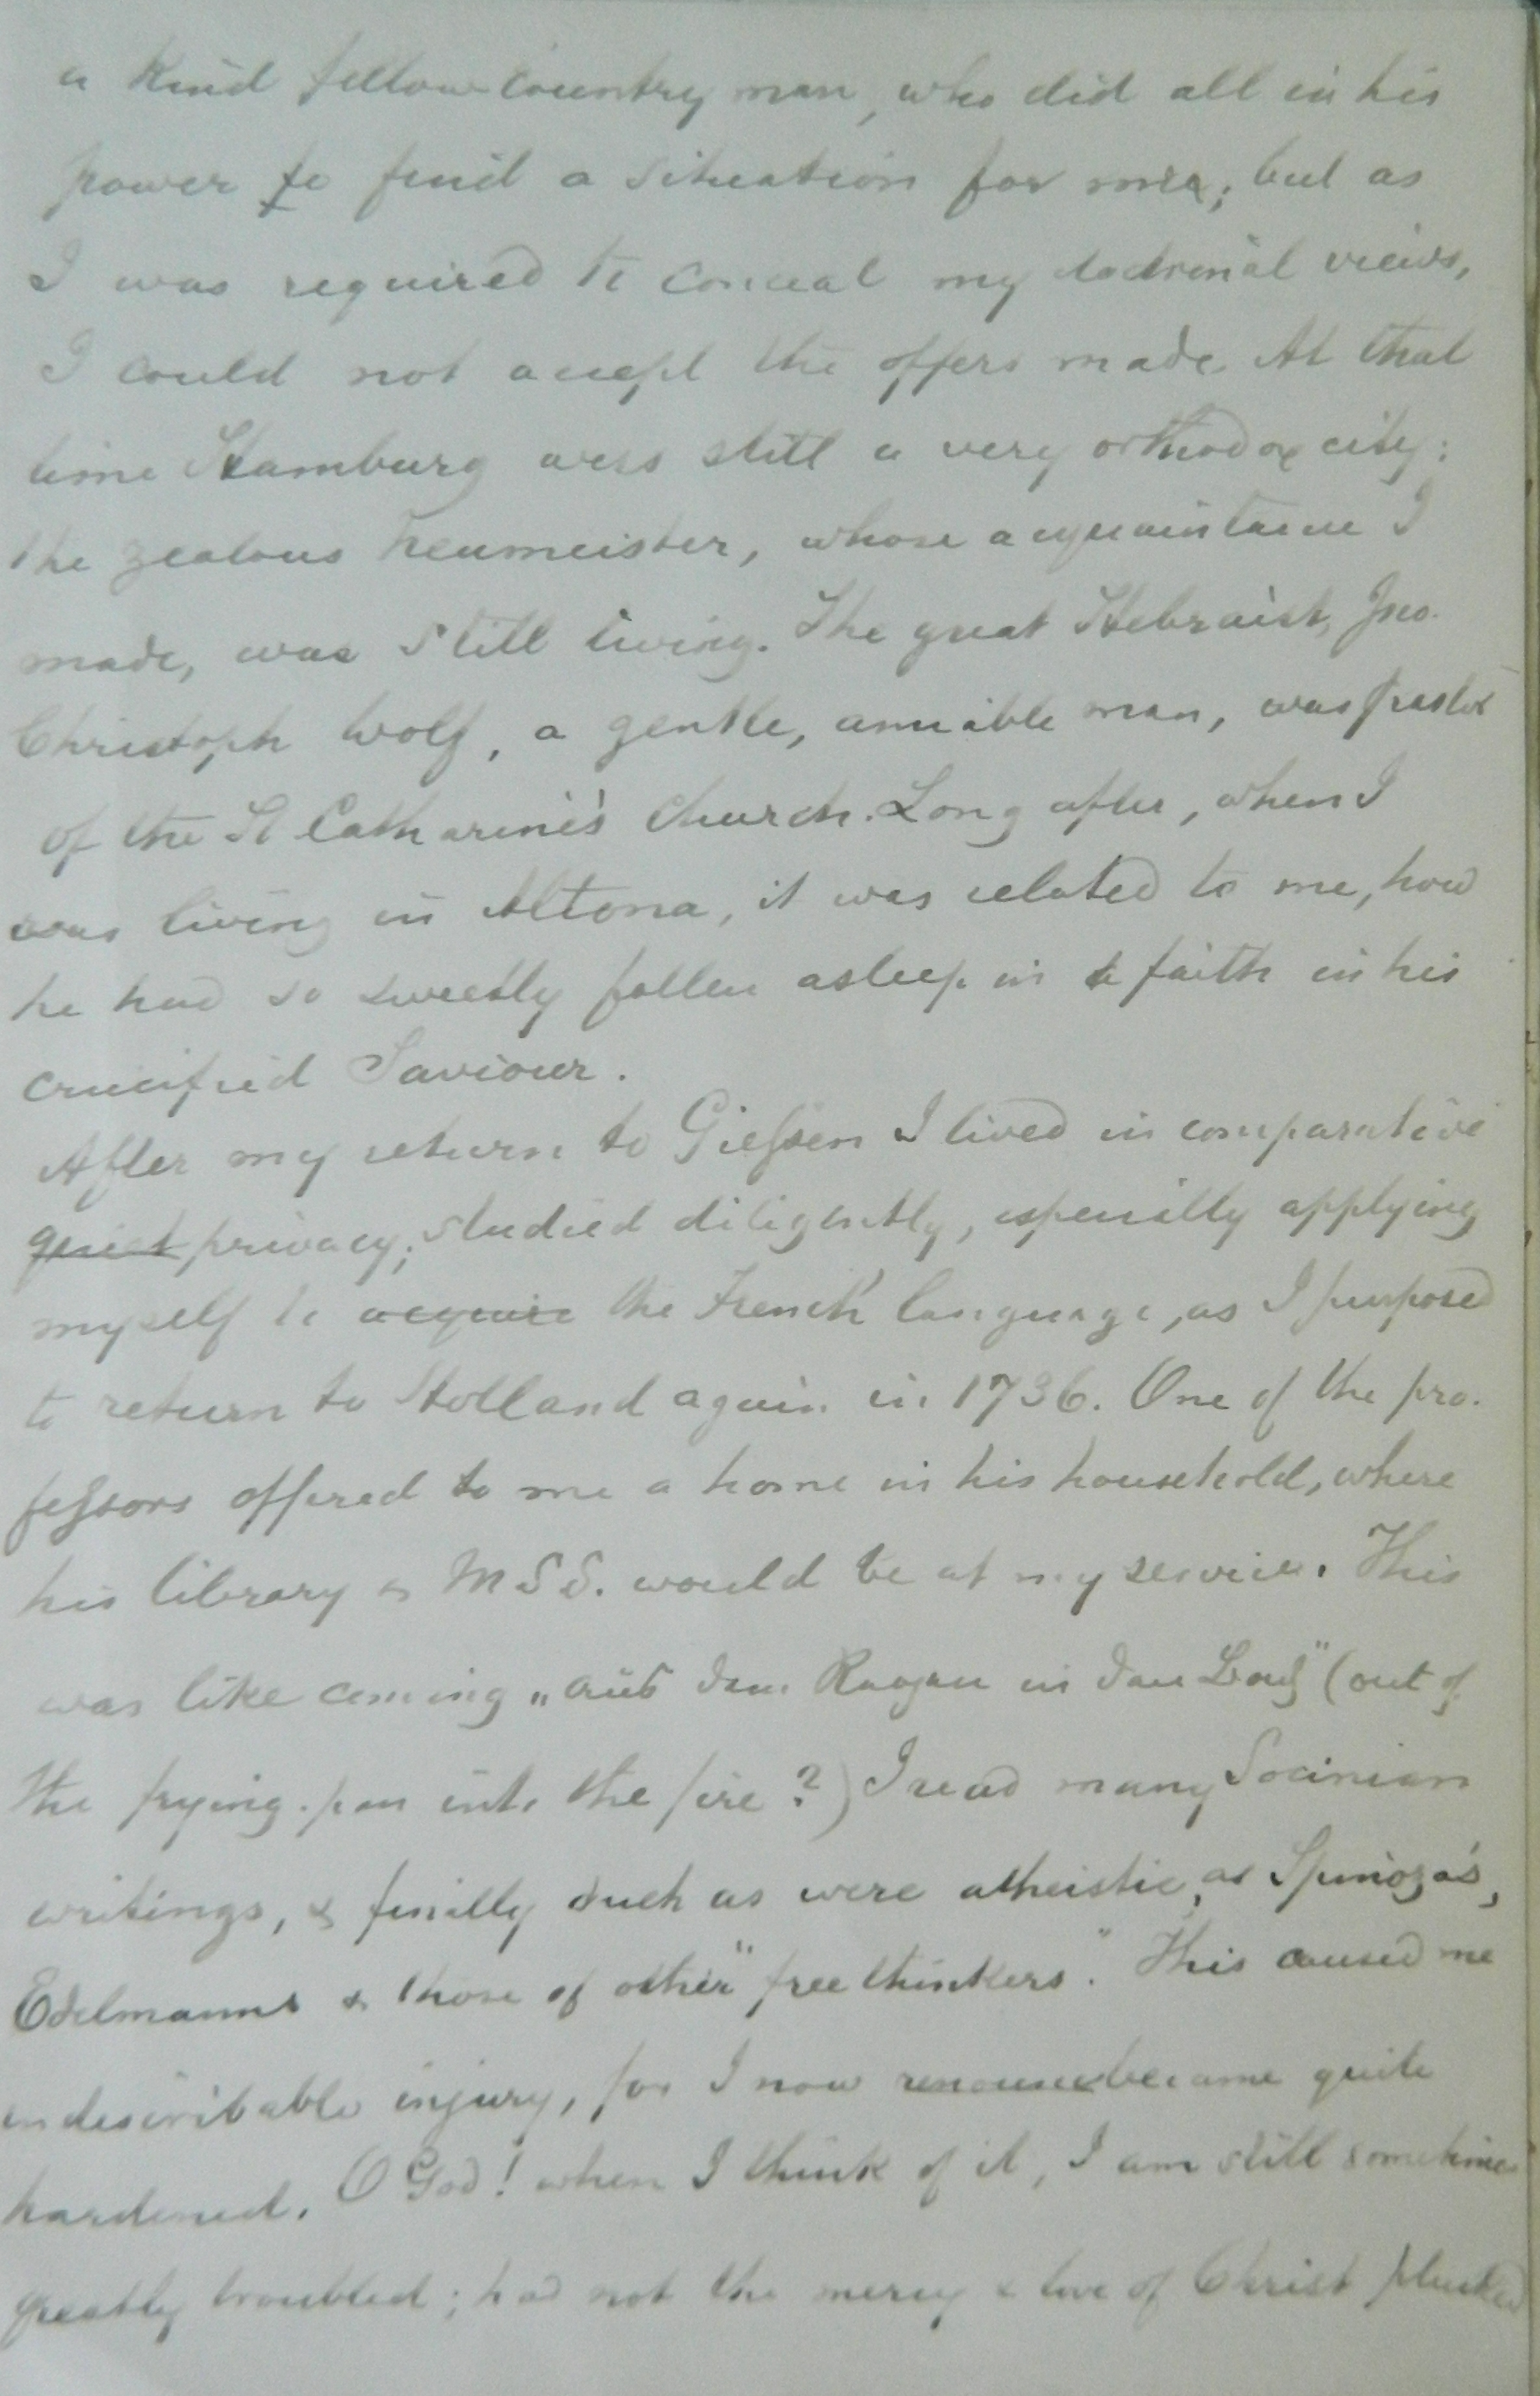 a kind fellow-countryman, who did all in his
power to find a situation for me; but as
I was required to conceal my doctrinal views,
I could not accept the offers made. At that
time Hamburg was still a very orthodox city:
the zealous Neumeister, whose acquaintance I
made, was still living. The great Hebraist, Jno.
Christoph Wolf, a gentle, amiable man, was pastor
of the St Catharine's Church. Long after, when I
was living in Altona, it was related to me, how
he had so sweetly fallen asleep in faith in his
crucified Saviour.
After my return to Gießen I lived in comparative
quiet privacy; studied diligently, especially applying
myself to acquire the French language, as I purposed
to return to Holland again in 1736. One of the pro-
feßsors offered to me a home in his household, where
his library & MSS. would be at my service. This
was like coming „aus dem Regen in den Bach" (out of
the frying-pan into the fire?) I read many Socinian
writings, & finally such as were atheistic, as Spinoza's,
Edelmanns & those of other "free thinkers". This caused me
indescribable injury, for I now renounce became quite
hardened. O God! when I think of it, I am still sometimes
greatly troubled; had not the mercy & love of Christ plucked